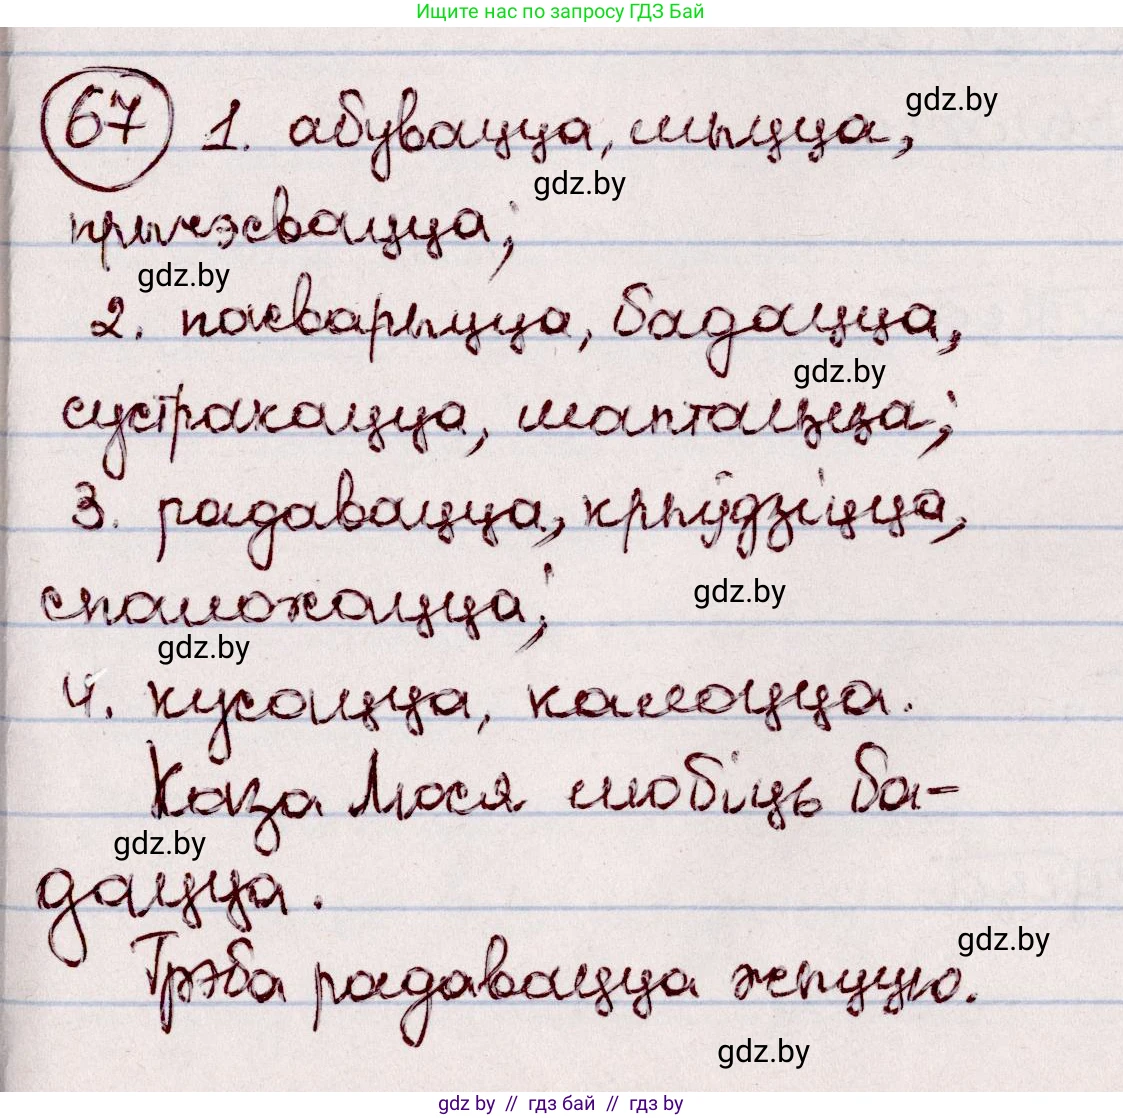 Ищите нас по запросу ГДЗ Бай
67 1. абувацца, мыцца,
gdz.by
gdz.by
прычэсвацца;
gdz.by
2. пасварыцца, бадацца,
gdz.by
сустракацца, шаптацца;
3. радавацца, крыўдзіцца,
gdz.by
спаможацца;
gdz.by
4. кусацца, калоцца.
Каза Люся любіць ба-
gdz.by
дацца.
gdz.by
Трэба радавацца жыццю.
gdz.by
gdz.by // гдз бай // гдз by